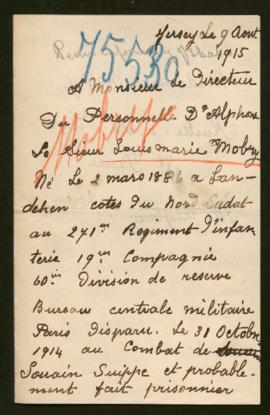 Jersey Le 9 Aout
1915
75530
A Monsieur de Directeur
Du Personnelle Dr Alphons
Mobry
Le Sieur Louis marie Mobry
Né Le 2 mars 1886 a Lan-
dehen cotes du Nord Sadat
au 271me Regiment D'infan
terie 19me Compagnie
60me Division de reserve
Bureau centrale militaire
Paris Disparu. Le 31 Octobre
1914 au Combat de
Souain Suippe et probable-
ment fait prisonnier